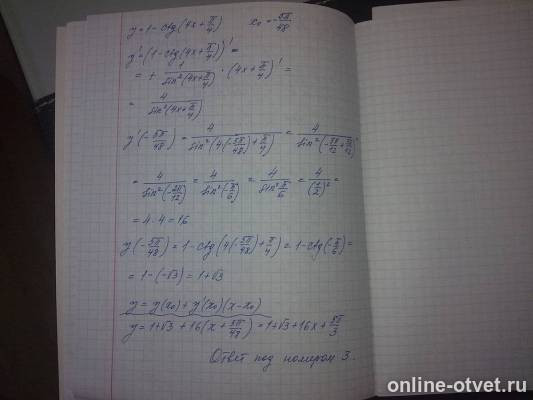 y=1-ctg(4x+π/4) x₀=-5π/48
y'=(1-ctg(4x+π/4))'=
=+ 1/sin²(4x+π/4) · (4x+π/4)'=
= 4/sin²(4x+π/4)
y'(-5π/48)= 4/sin²(4(-5π/48)+π/4) = 4/sin²(-5π/12+3π/12) =
= 4/sin²(-2π/12) = 4/sin²(-π/6) = 4/sin²π/6 = 4/(1/2)² =
=4·4=16
y(-5π/48)=1-ctg(4(-5π/48)+π/4)=1-ctg(-π/6)=
=1-(-√3)=1+√3
y=y(x₀)+y'(x₀)(x-x₀)
y=1+√3+16(x+5π/48)=1+√3+16x+5π/3
Ответ под номером 3.
online-otvet.ru